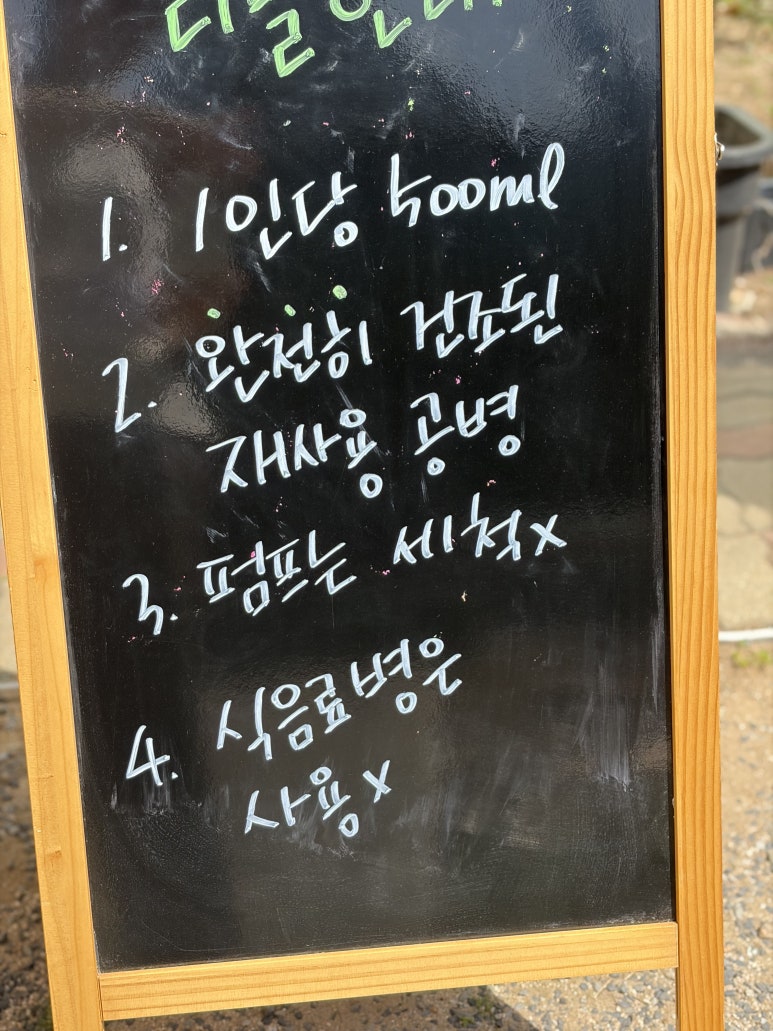 1. 1인당 500ml
2. 완전히 건조된
재사용 공병
3. 펌프는 세척x
4. 식음료병은
사용x